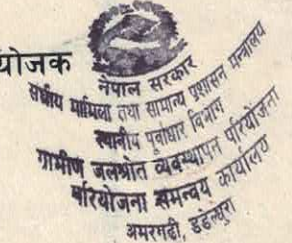 योजक
नेपाल सरकार
संघीय मामिला तथा सामान्य प्रशासन मन्त्रालय
स्थानीय पूर्वाधार विभाग
ग्रामीण जलश्रोत व्यवस्थापन परियोजना
परियोजना समन्वय कार्यालय
अमरगढी, डडेल्धुरा